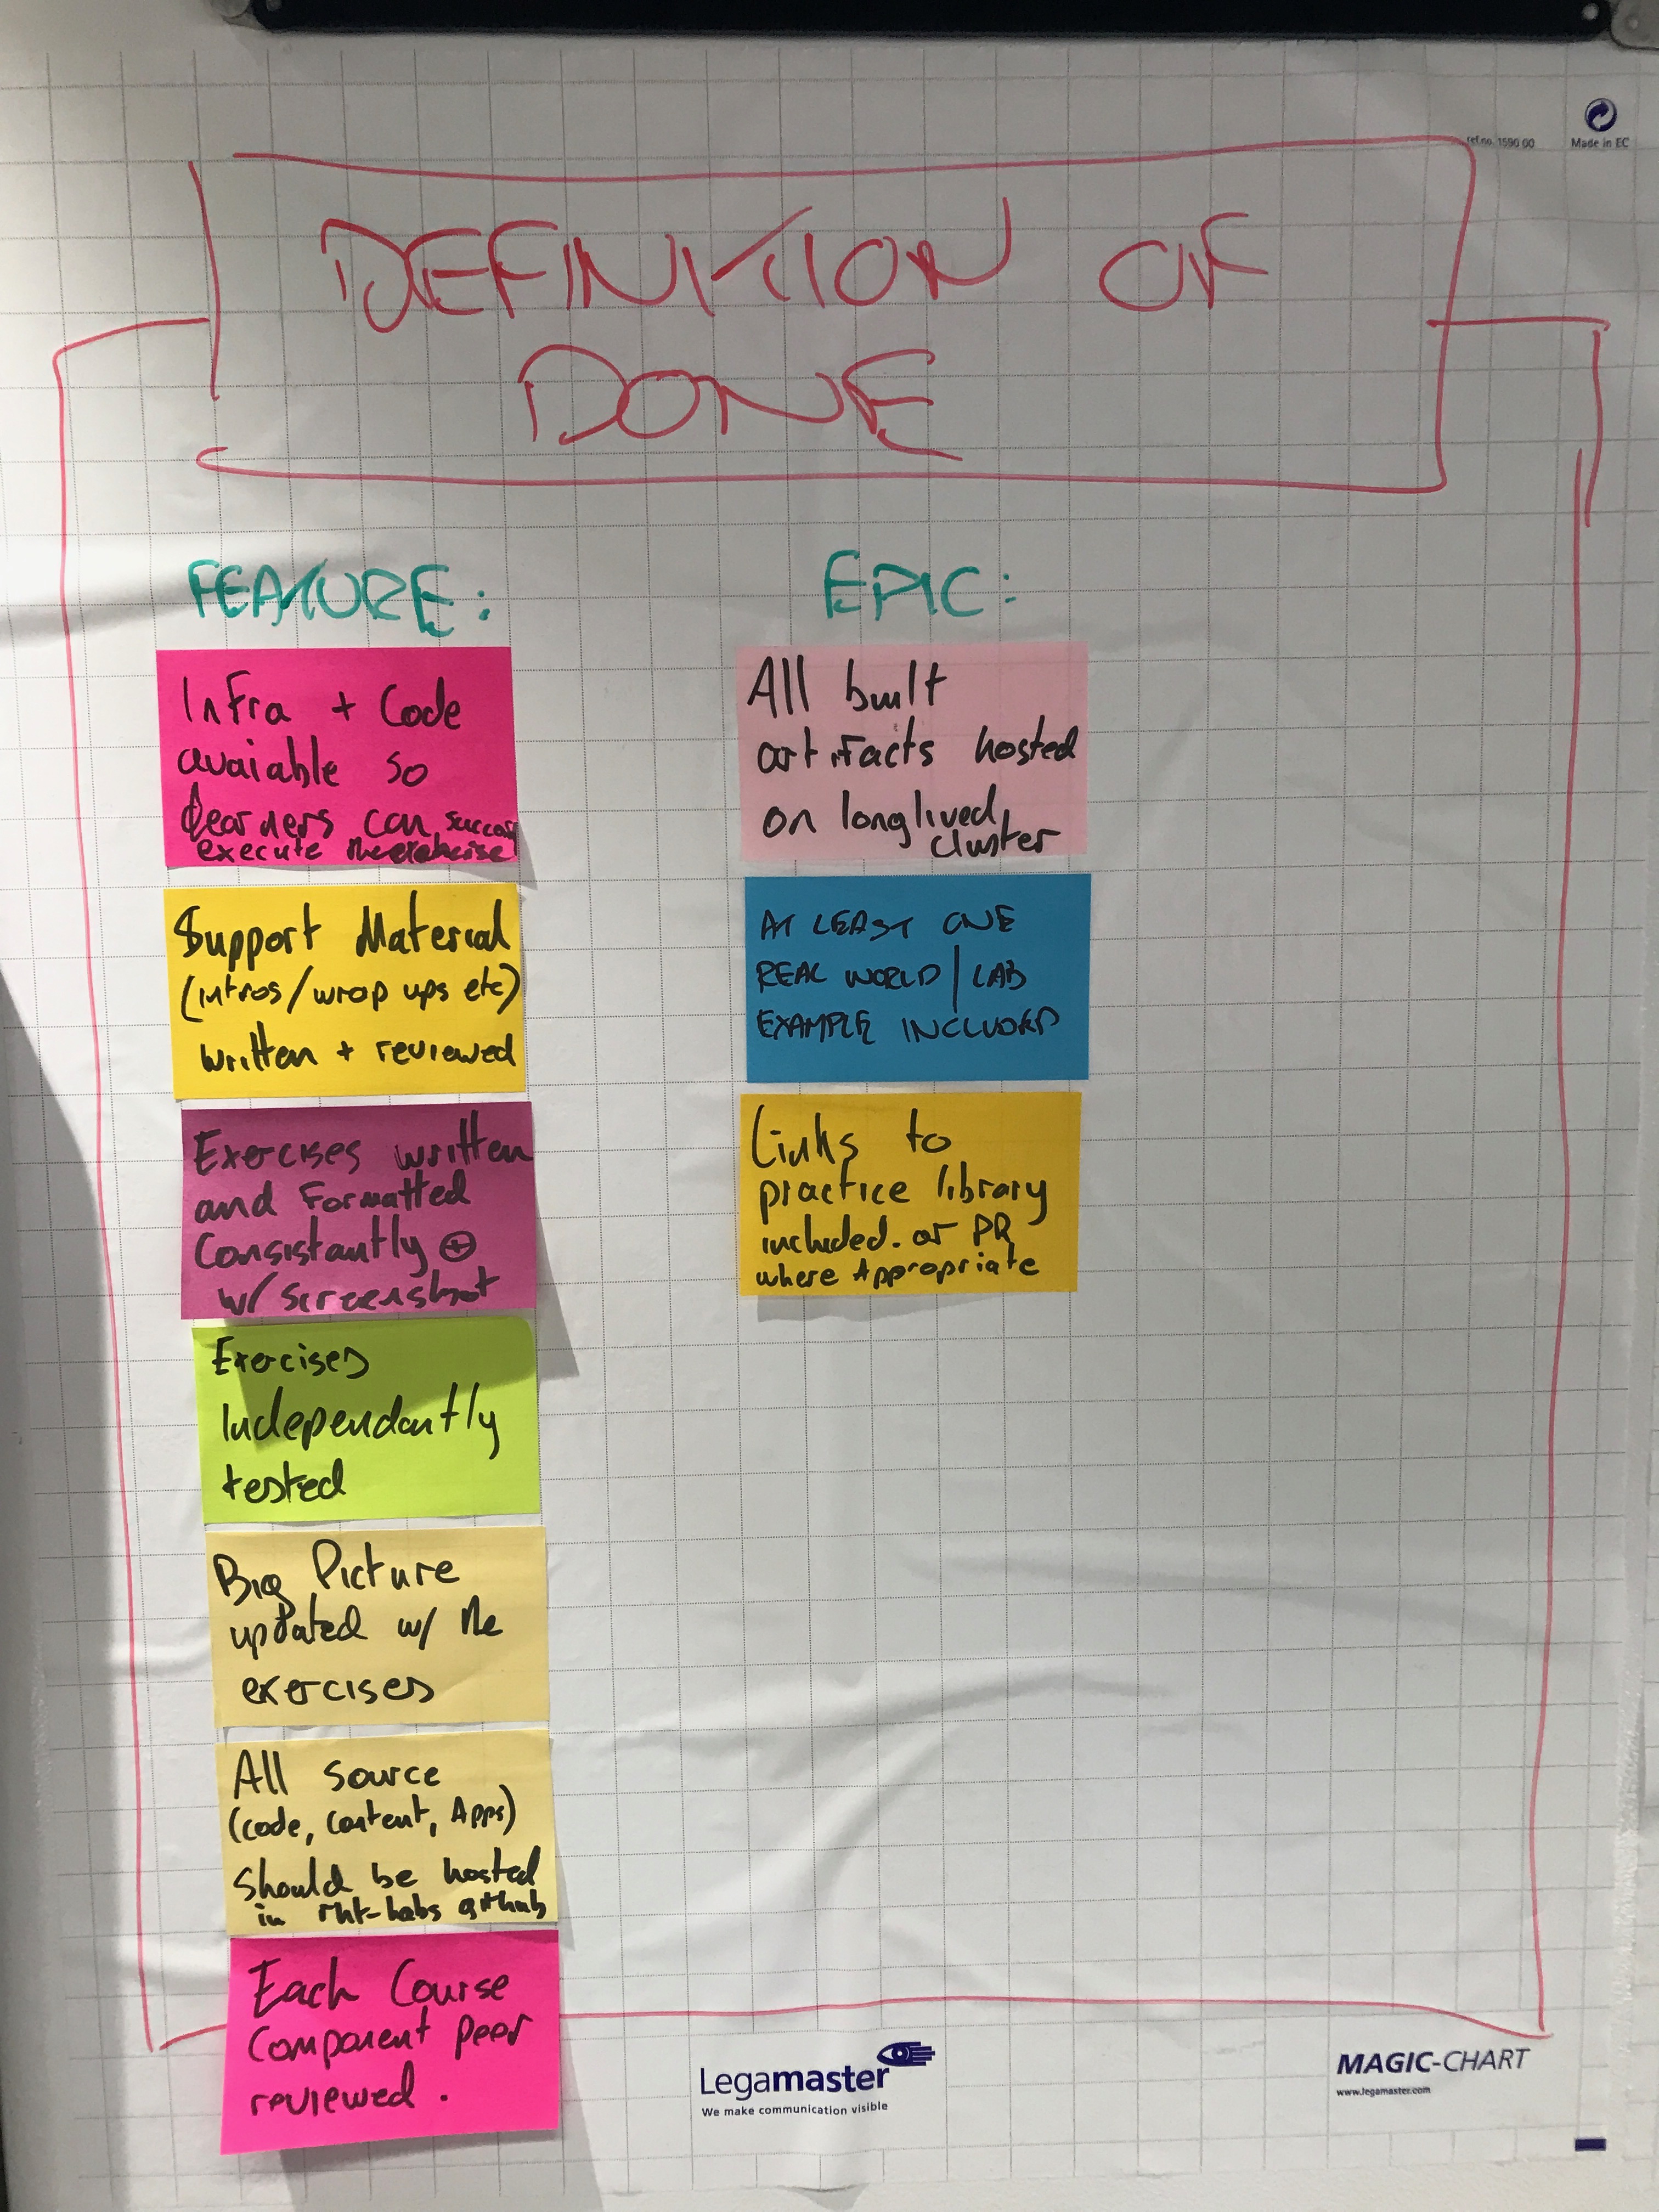 ref.no. 1590 00
Made in EC
DEFINITION OF
DONE
FEATURE:
Infra + Code
avaiable so
learners can
execute the exercise
Support Material
(intros/wrap ups etc)
written + reviewed
Exercises written
and Formatted
Consistantly ⊕
w/ Screenshot
Exercises
Independantly
tested
Big Picture
updated w/ the
exercises
All source
(code, content, Apps)
should be hosted
in rht-labs github
Each Course
Component peer
reviewed.
EPIC:
All built
artifacts hosted
on longlived
cluster
AT LEAST ONE
REAL WORLD | LAB
EXAMPLE INCLUDED
Links to
practice library
included. or PR
where Appropriate
Legamaster
We make communication visible
MAGIC-CHART
www.legamaster.com